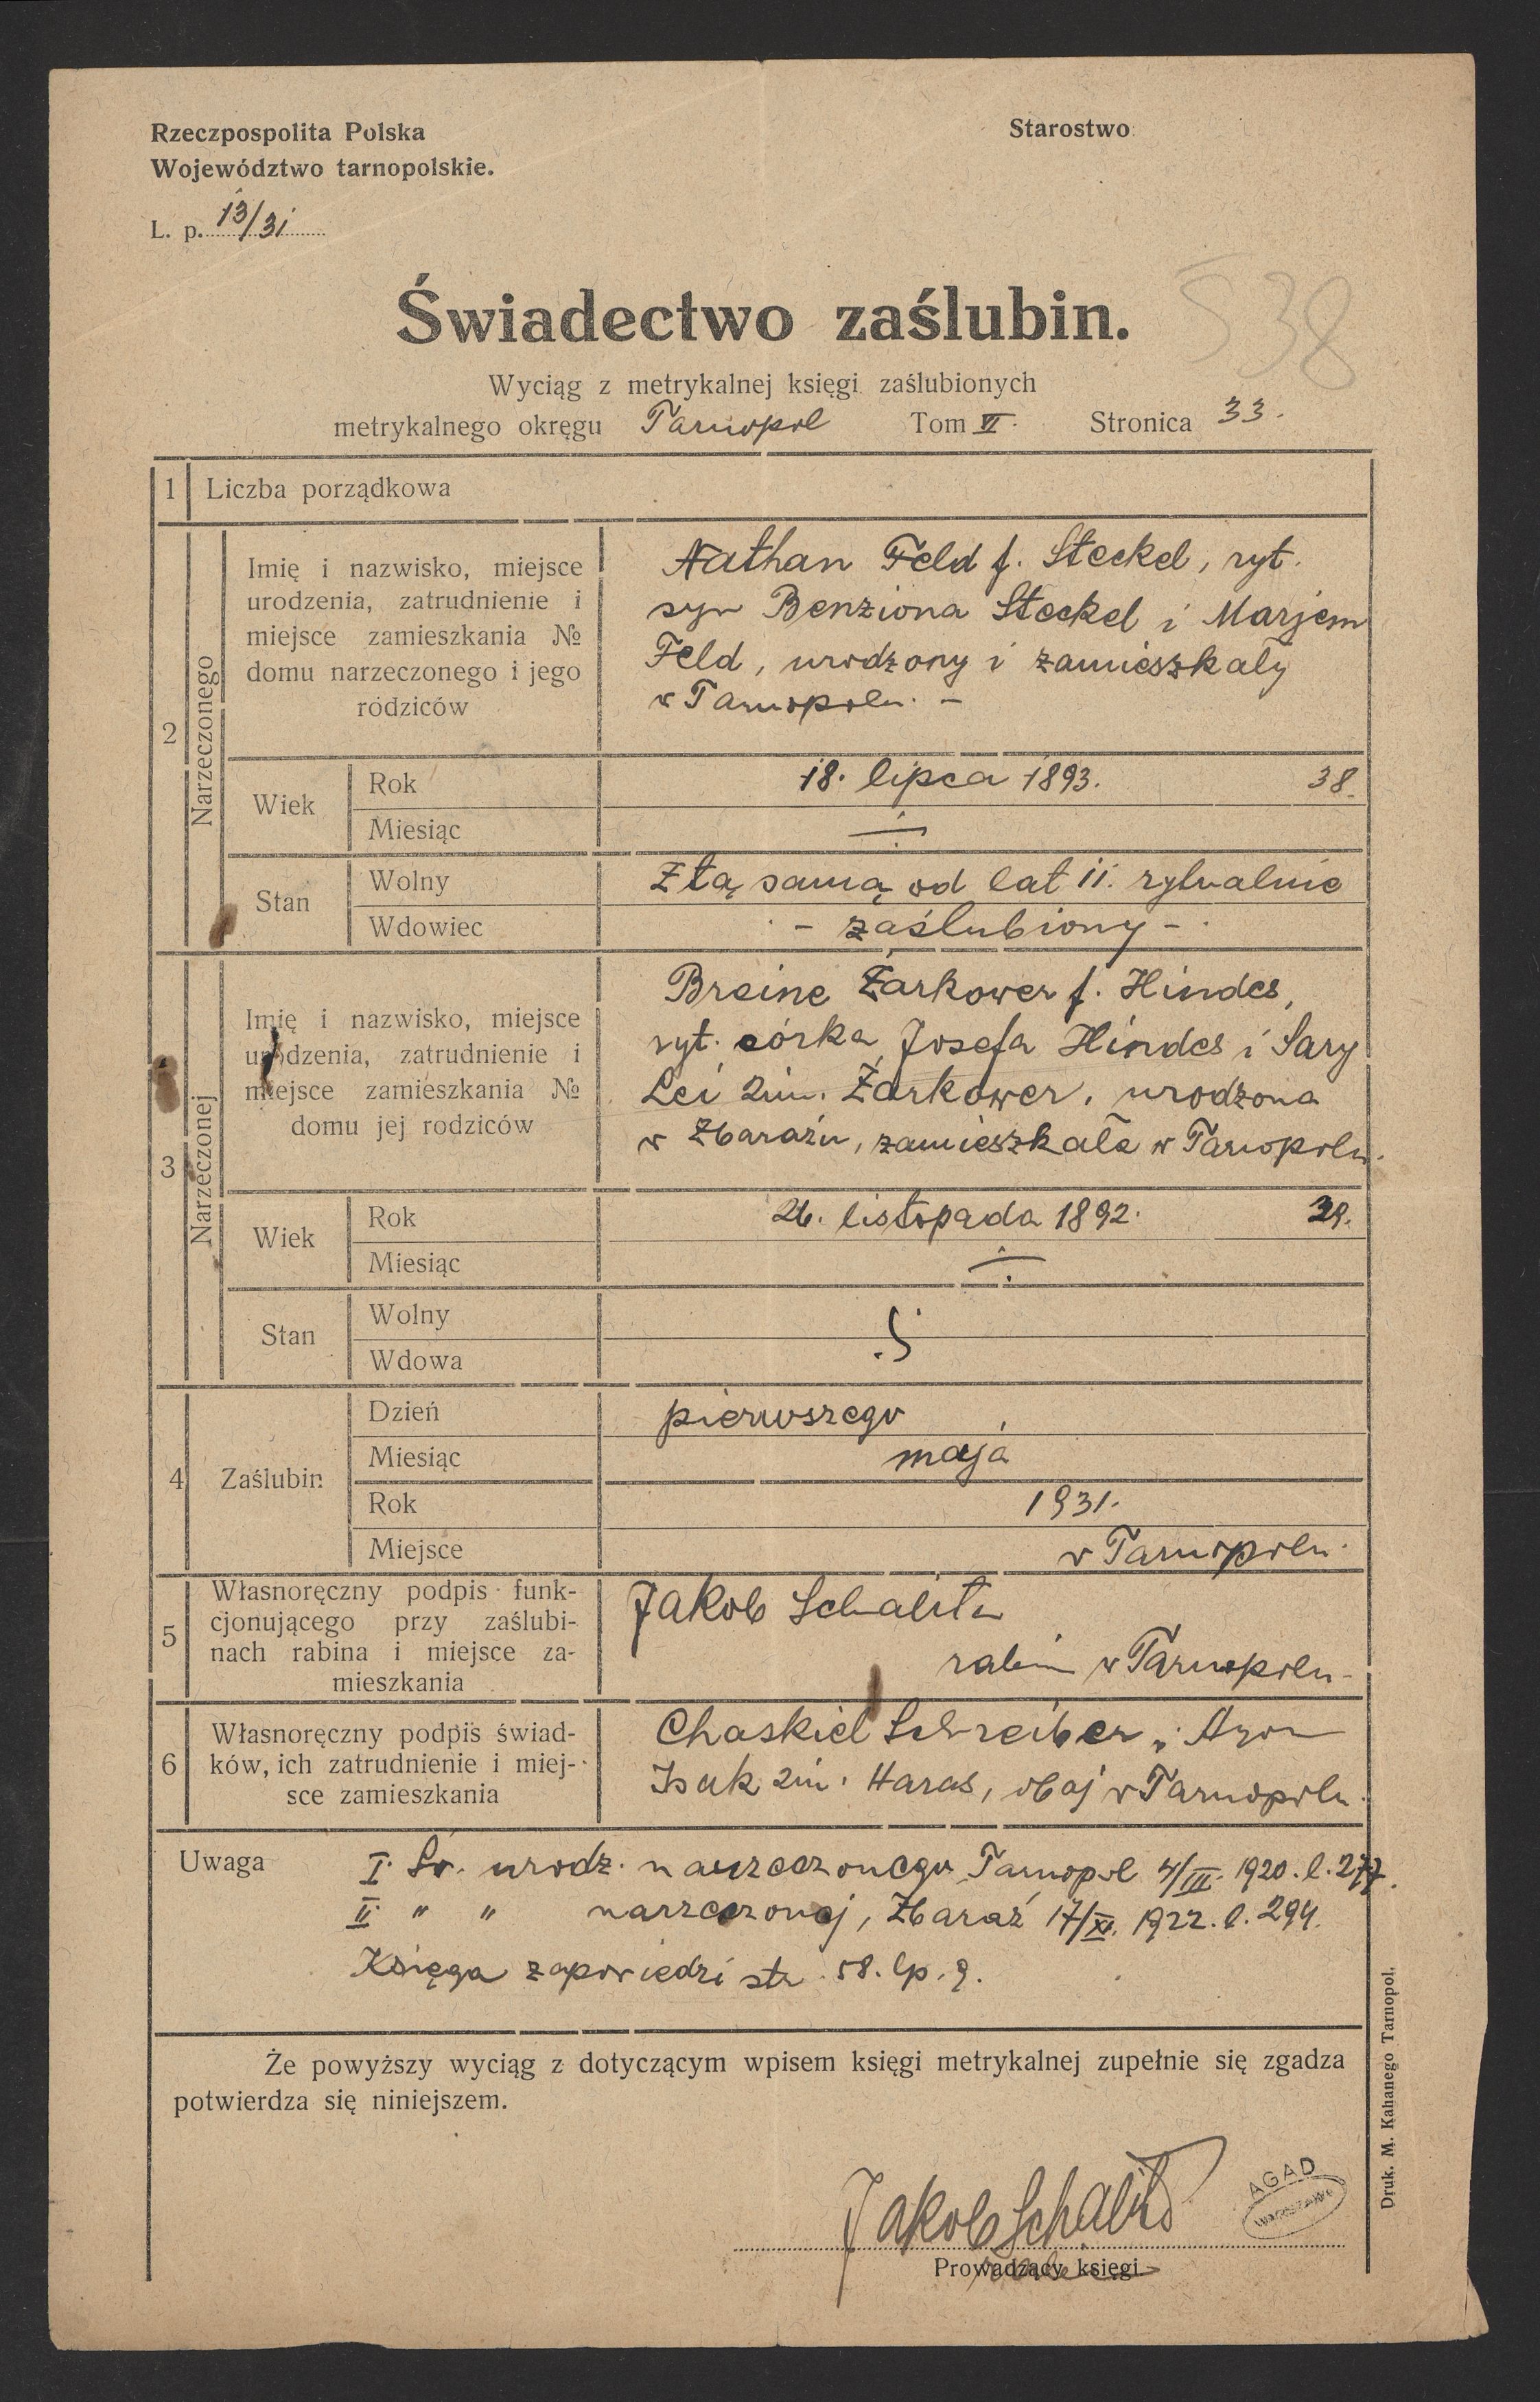 Rzeczpospolita Polska
Województwo tarnopolskie.
Starostwo
L. p. 13/31
538
Świadectwo zaślubin.
Wyciąg z metrykalnej księgi zaślubionych
metrykalnego okręgu Tarnopol Tom VI. Stronica 33.
1 Liczba porządkowa
2 Narzeczonego
Imię i nazwisko, miejsce
urodzenia, zatrudnienie i
miejsce zamieszkania №
domu narzeczonego i jego
rodziców
Nathan Feld f. Steckel, ryt.
syn Benziona Steckel i Marjem
Feld, urodzony i zamieszkały
w Tarnopolu. -
Wiek
Rok 18. lipca 1893. 38.
Miesiąc
Stan
Wolny Z tą samą od lat 11. rytualnie
Wdowiec - zaślubiony -
3 Narzeczonej
Imię i nazwisko, miejsce
urodzenia, zatrudnienie i
miejsce zamieszkania №
domu jej rodziców
Breine Żarkower f. Hindes,
ryt. córka Josefa Hindes i Sary
Lei 2im. Żarkower, urodzona
w Zbarażu, zamieszkała w Tarnopolu.
Wiek
Rok 26. listopada 1892. 39.
Miesiąc
Stan
Wolny
Wdowa
4 Zaślubin
Dzień pierwszego
Miesiąc maja
Rok 1931.
Miejsce w Tarnopolu.
5 Własnoręczny podpis funk-
cjonującego przy zaślubi-
nach rabina i miejsce za-
mieszkania
Jakob Schalita
rabin w Tarnopolu-
6 Własnoręczny podpis świad-
ków, ich zatrudnienie i miej-
sce zamieszkania
Chaskiel Schreiber, Aron
Isak 2im. Haras, obaj w Tarnopolu.
Uwaga I. Św. urodz. narzeczonego, Tarnopol 4/III. 1920. l. 277.
II. " " narzeczonej, Zbaraż 17/XI. 1922. l. 294.
Księga zapowiedzi str. 58. lp. 9.
Że powyższy wyciąg z dotyczącym wpisem księgi metrykalnej zupełnie się zgadza
potwierdza się niniejszem.
Jakob Schalita
Prowadzący księgi.
AGAD
WARSZAWA
Druk. M. Kahanego Tarnopol.